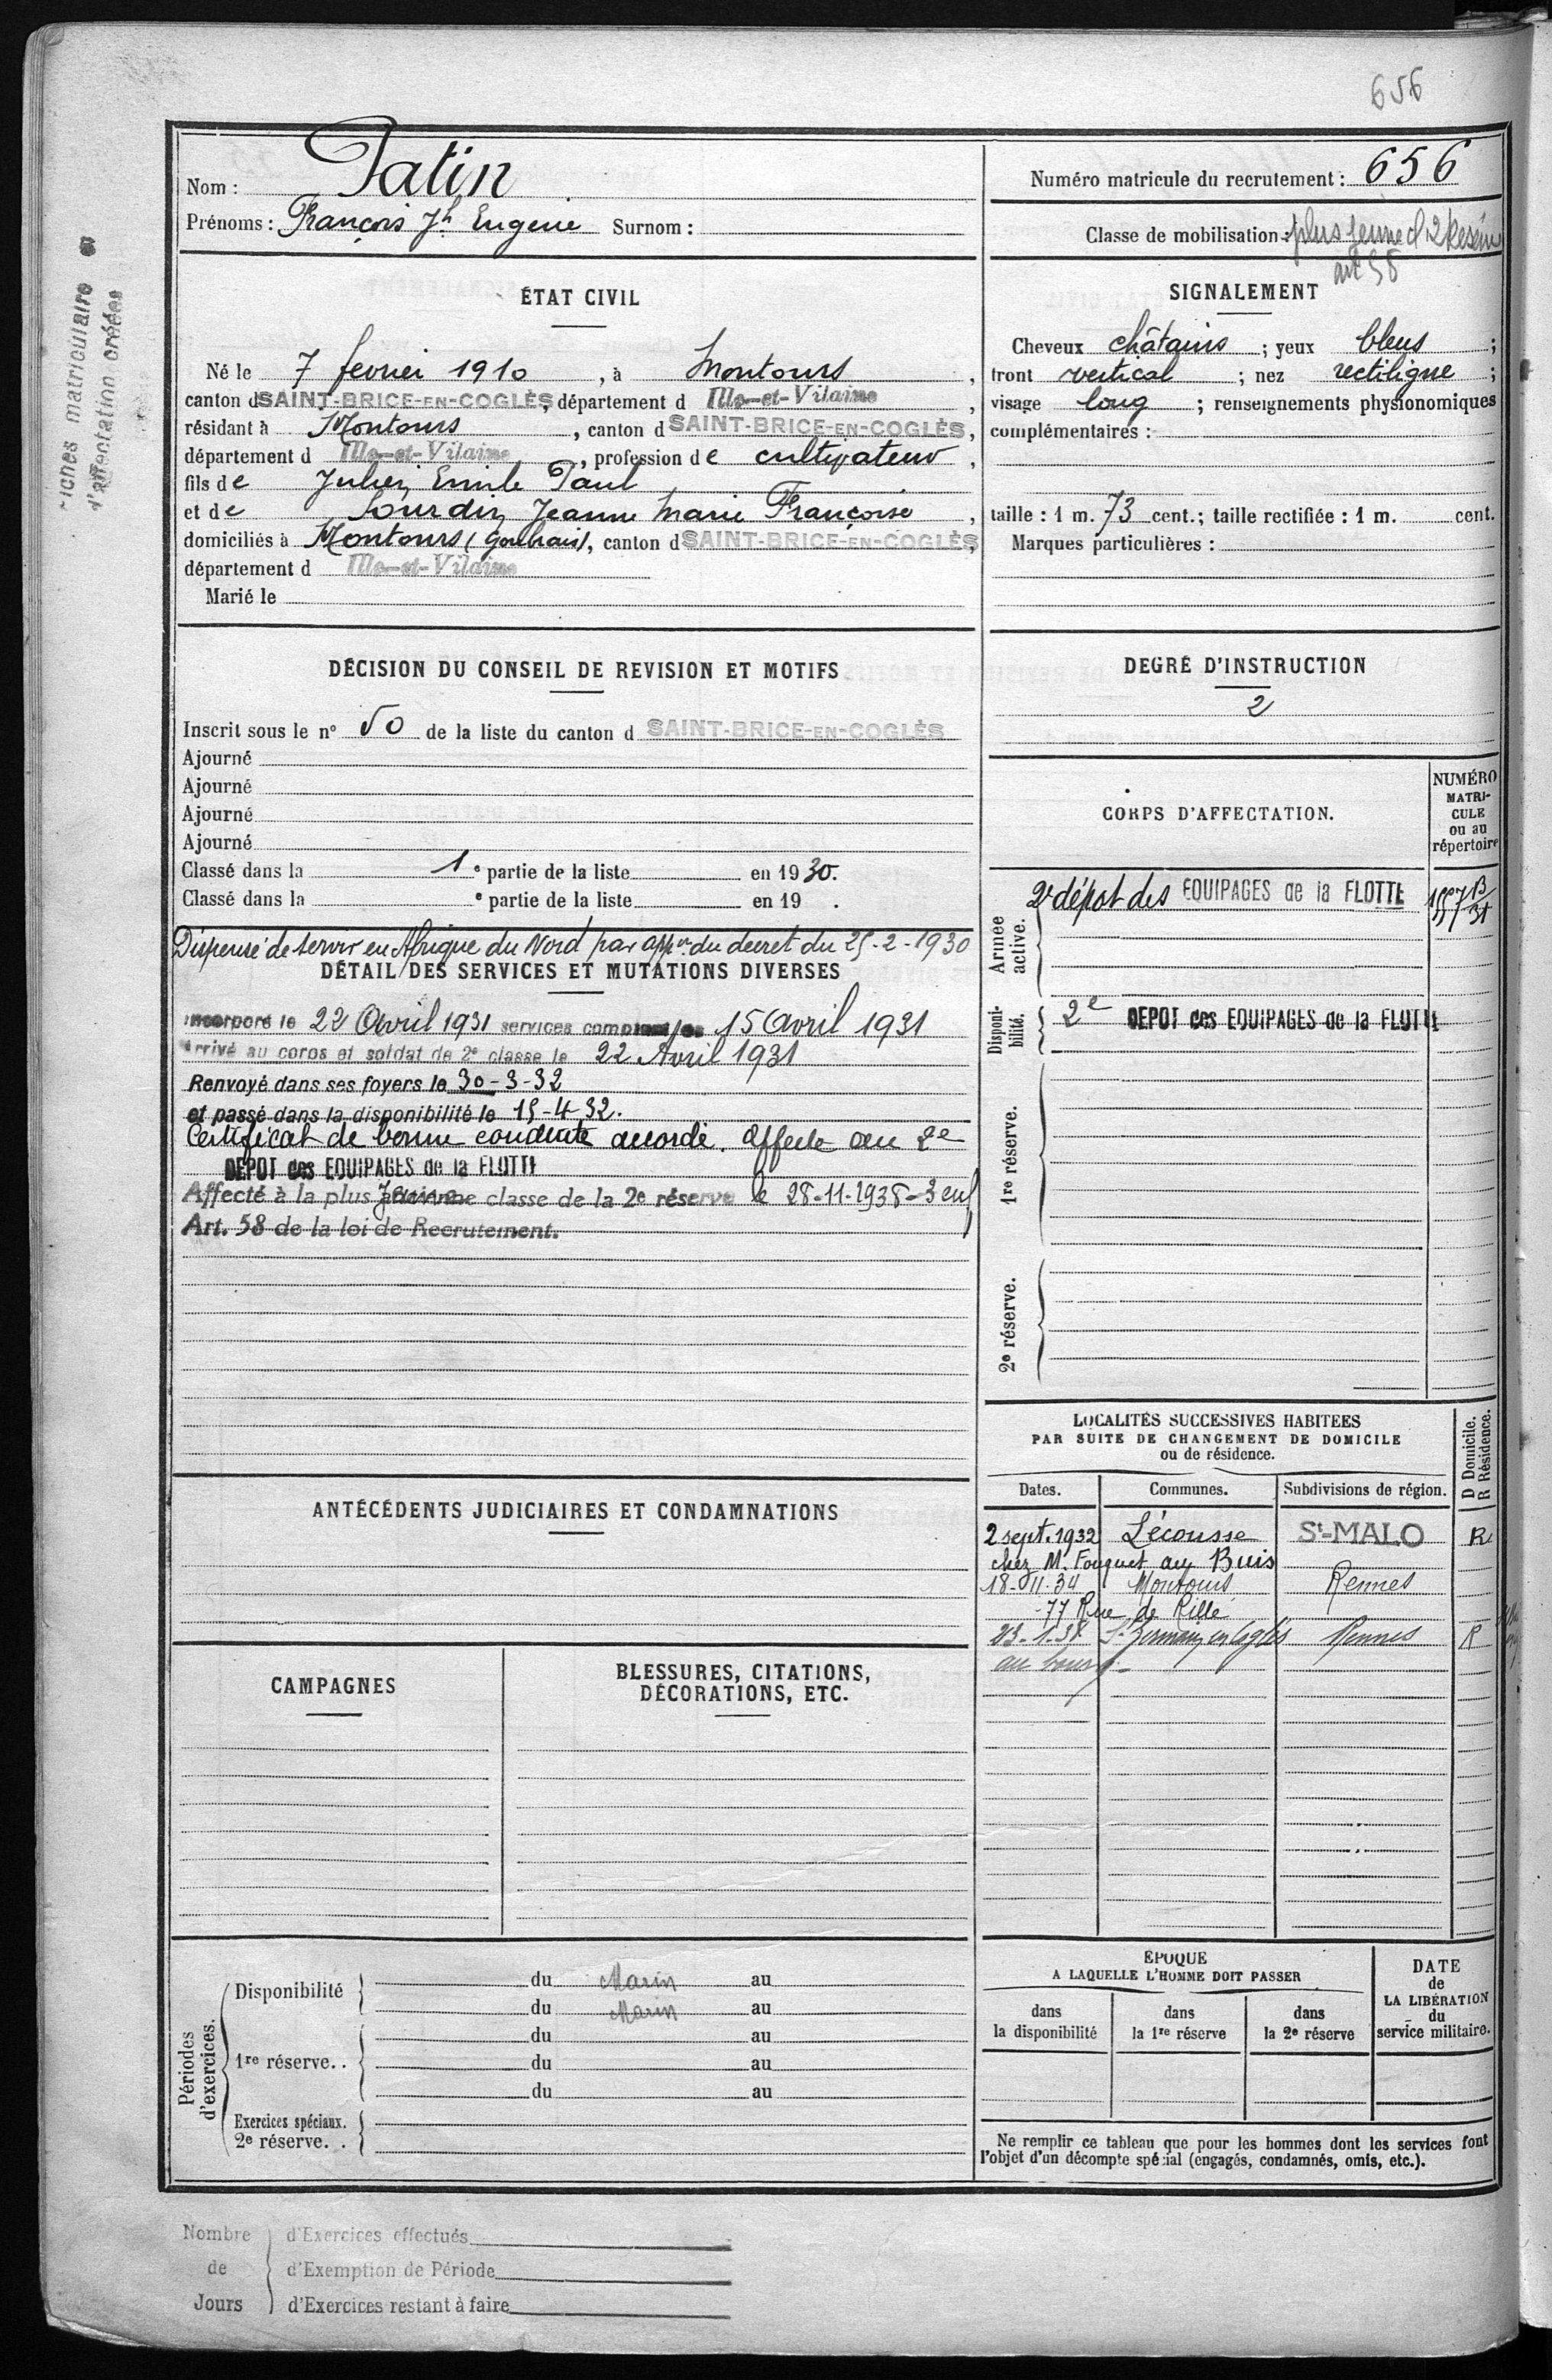 656
fiches matriculaire
d'affectation créées
Nom : Patin
Prénoms : François Jh Eugène Surnom :
Numéro matricule du recrutement : 656
Classe de mobilisation : plus jeune cl 2 Reserve
art 58
ÉTAT CIVIL
Né le 7 fevrier 1910, à Montours,
canton d SAINT-BRICE-EN-COGLÈS, département d Ille-et-Vilaine,
résidant à Montours, canton d SAINT-BRICE-EN-COGLÈS,
département d Ille-et-Vilaine, profession de cultivateur,
fils de Julien Emile Paul
et de Lourdin Jeanne Marie Françoise,
domiciliés à Montours (), canton d SAINT-BRICE-EN-COGLÈS,
département d Ille-et-Vilaine
Marié le
SIGNALEMENT
Cheveux châtains ; yeux bleus ;
front vertical ; nez rectiligne ;
visage long ; renseignements physionomiques
complémentaires :
taille : 1 m. 73 cent. ; taille rectifiée : 1 m. cent.
Marques particulières :
DÉCISION DU CONSEIL DE REVISION ET MOTIFS
Inscrit sous le n° 50 de la liste du canton d SAINT-BRICE-EN-COGLÈS
Ajourné
Ajourné
Ajourné
Ajourné
Classé dans la 1e partie de la liste en 1930.
Classé dans la e partie de la liste en 19 .
DEGRÉ D'INSTRUCTION
2
Dispensé de servir en Afrique du Nord par appon du decret du 25-2-1930
DÉTAIL DES SERVICES ET MUTATIONS DIVERSES
Incorporé le 22 Avril 1931 services comptant du 15 Avril 1931
Arrivé au corps et soldat de 2e classe le 22 Avril 1931
Renvoyé dans ses foyers le 30-3-32
et passé dans la disponibilité le 15-4-32.
Certificat de bonne conduite accordé. Affecté au 2e
DEPOT des EQUIPAGES de la FLOTTE
Affecté à la plus Jeune classe de la 2e réserve le 28-11-1938 - 3 enf
Art. 58 de la loi de Recrutement.
CORPS D'AFFECTATION.
NUMÉRO
MATRI-
CULE
ou au
répertoire
Armée
active.
2e dépot des EQUIPAGES de la FLOTTE
Disponi-
bilité.
2e DEPOT des EQUIPAGES de la FLOTTE
1re réserve.
2e réserve.
LOCALITÉS SUCCESSIVES HABITÉES
PAR SUITE DE CHANGEMENT DE DOMICILE
ou de résidence.
D Domicile.
R Résidence.
Dates. Communes. Subdivisions de région.
2 sept. 1932 Lécousse St-MALO R
chez M. Fouquet au Buis
18-11-34 Montours Rennes
77 Rue de Rillé
23-1-38 St Germain en Coglès Rennes R
au bourg
ANTÉCÉDENTS JUDICIAIRES ET CONDAMNATIONS
CAMPAGNES
BLESSURES, CITATIONS,
DÉCORATIONS, ETC.
Périodes
d'exercices.
Disponibilité du Marin au
du Marin au
1re réserve. . du au
du au
du au
Exercices spéciaux.
2e réserve. .
ÉPOQUE
A LAQUELLE L'HOMME DOIT PASSER
dans
la disponibilité
dans
la 1re réserve
dans
la 2e réserve
DATE
de
LA LIBÉRATION
du
service militaire.
Ne remplir ce tableau que pour les hommes dont les services font
l'objet d'un décompte spécial (engagés, condamnés, omis, etc.).
Nombre d'Exercices effectués
de d'Exemption de Période
Jours d'Exercices restant à faire